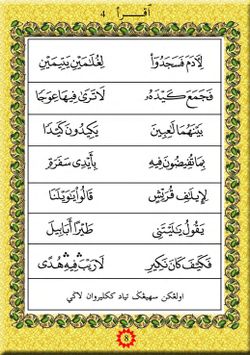 أقرأ 4
لِأَدَمَ فَسَجَدُوٓاْ لِغُلَٰمَيْنِ يَتِيمَيْنِ
فَجَمَعَ كَيْدَهُۥ لَا تَرَىٰ فِيهَا عِوَجًا
بَيْنَهُمَا لَٰعِبِينَ يَكِيدُونَ كَيْدًا
بِمَا تُفِيضُونَ فِيهِ بِأَيْدِى سَفَرَةٍ
لِإِيلَٰفِ قُرَيْشٍ قَالُواْ يَٰوَيْلَنَا
يَقُولُ يَٰلَيْتَنِى طَيْرًا أَبَابِيلَ
فَكَيْفَ كَانَ نَكِيرِ لَا رَيْبَ ۛ فِيهِ ۛ هُدًى
اولڠكن سهيڠݢ تياد ككليروان لاݢي
8